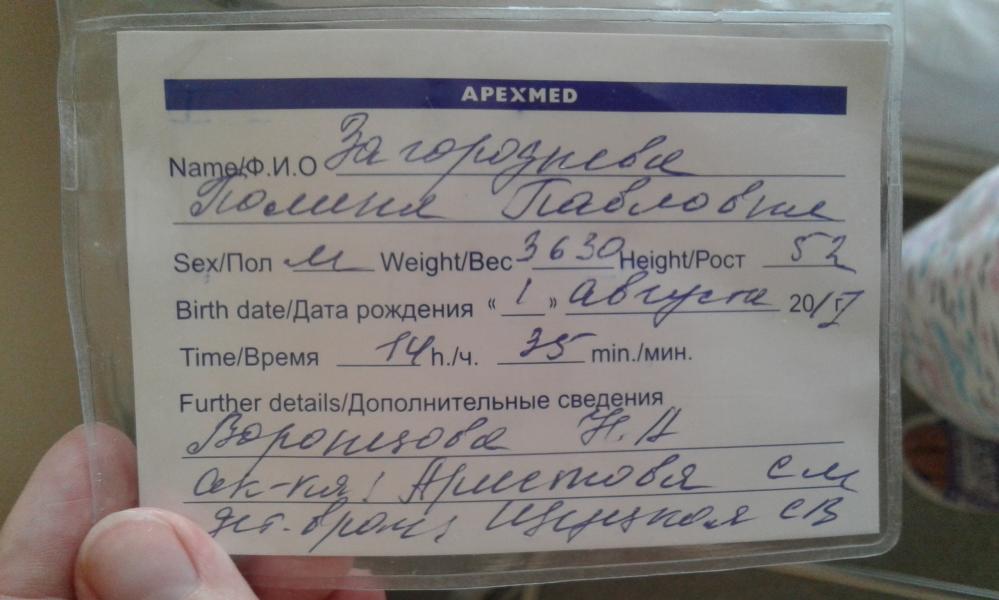 APEXMED
Name/Ф.И.О Загороднева
Полина Павловна
Sex/Пол м Weight/Вес 3630 Height/Рост 52
Birth date/Дата рождения “ 1 ” августа 2017
Time/Время 14 h./ч. 35 min./мин.
Further details/Дополнительные сведения
Воронцова Н.А
ак-ка: Аристова см
дет. врач: СВ